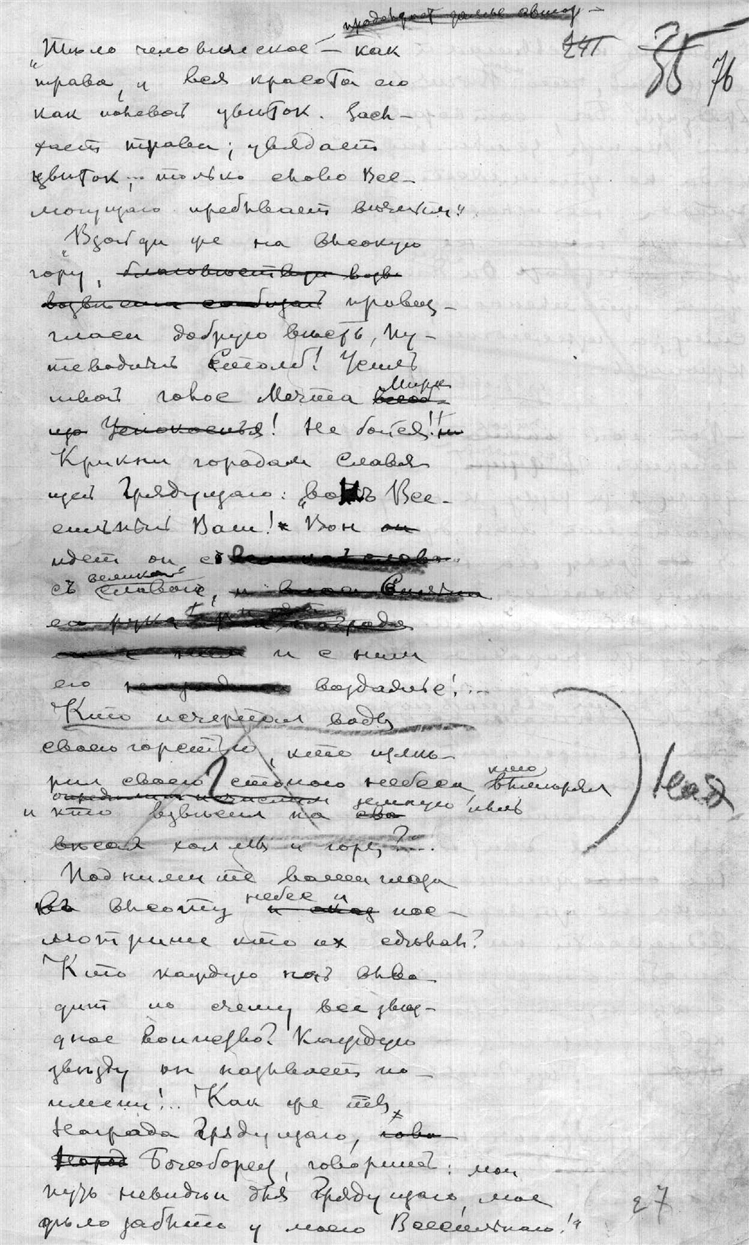 продолжает далее автор –
241 35 76
Тѣло человѣческое – как
„трава, и вся красота его
как полевой цвѣток. Засы-
хает трава; увядает
цвѣток,... только слово Все-
могущаго пребывает вѣчным".
„Взойди же на высокую
гору, провоз-
гласи добрую вѣсть, Пу-
теводный Столб! Усиль
твой голос Мечта Мира
! Не бойся!!
Крикни городам Славя
идеи Грядущаго: „вотъ Все-
сильный Ваш! Вон
идет он съ
съ великой славой,
и с ним
его воздаянье!...
Кто исчерпал воду
своею горстью, кто измѣ-
рил своею стопою небеса кто вымѣрял
земную пыль
и кто взвѣсил на
вѣсах холмы и горы?....
Поднимите ваши глаза
въ высоту небес и пос-
мотрите кто их создал?
Кто каждую ночь выво-
дит по счету все звѣз-
дное воинство? Каждую
звѣзду он называет по
имени!.. Как же ты,
Награда Грядущаго,
Богоборец, говоришь: мой
путь невидим для Грядущаго, мое
дѣло забыто у моего Всесильнаго!"
27